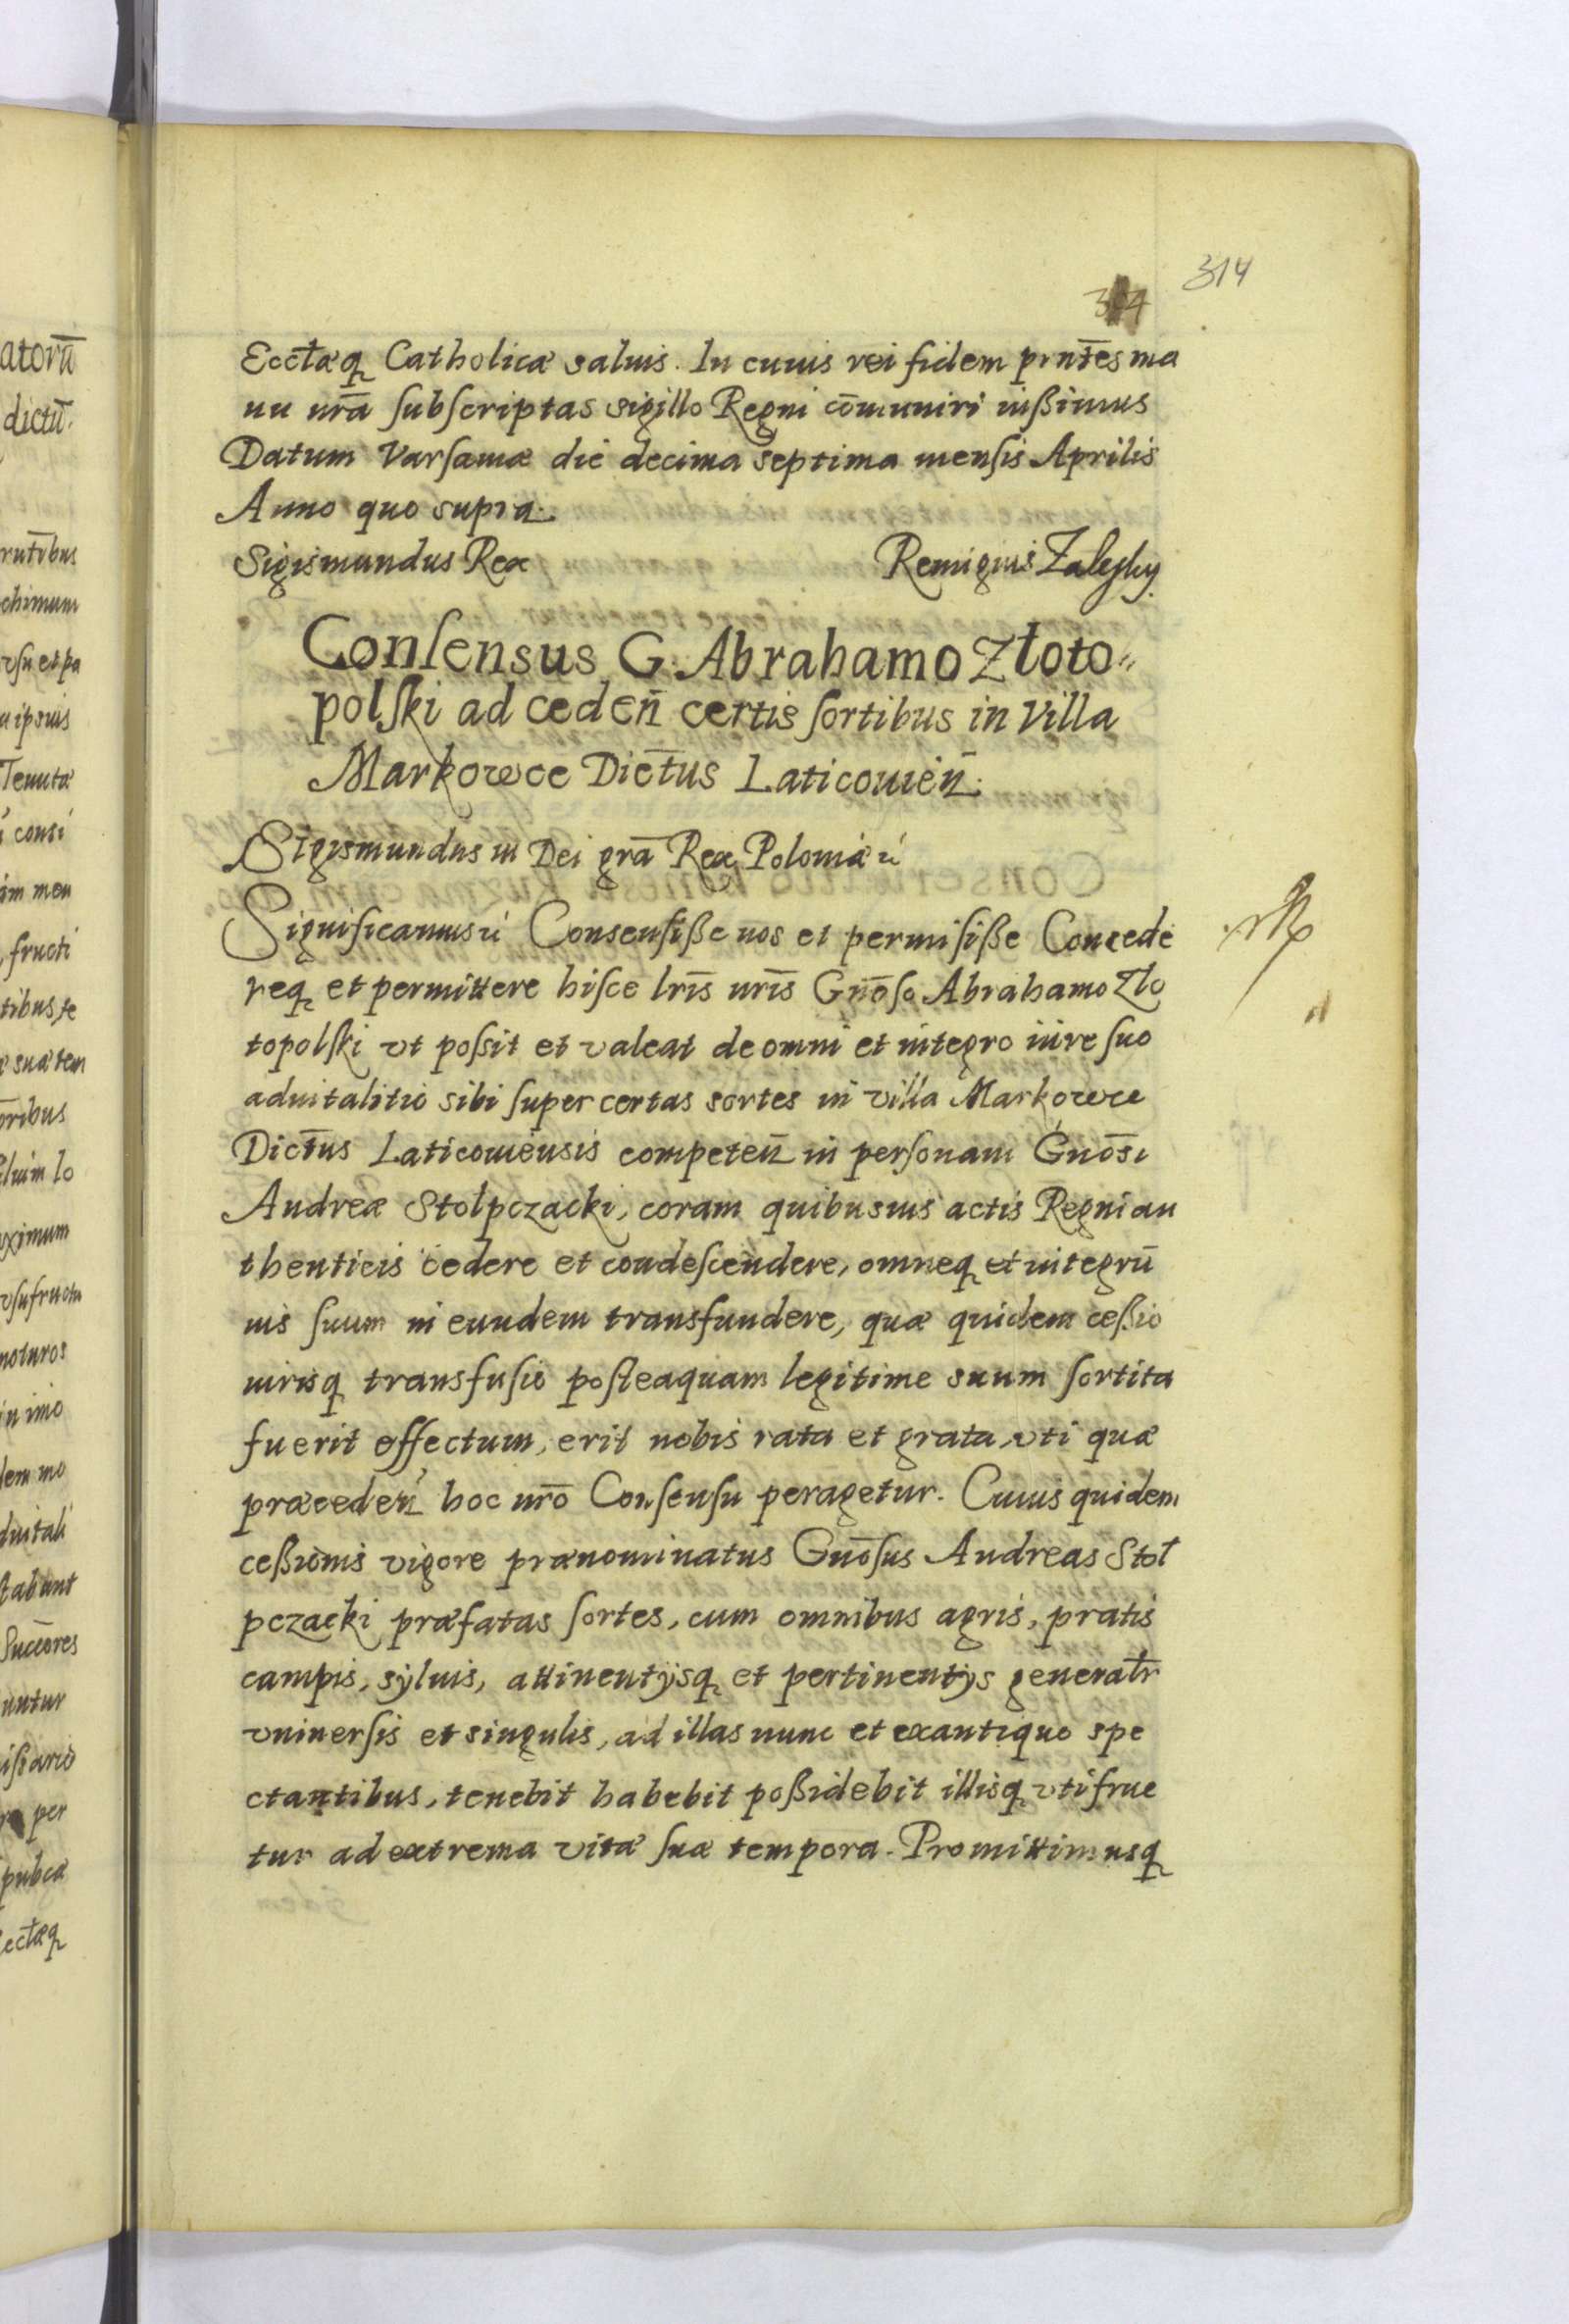 314
314
Eccłæq Catholicæ saluis. In cuuis rei fidem prnt̄es ma
nu nrā subscriptas sigillo Regni cōmuniri iussimus
Datum Varsauiæ die decima septima mensis Aprilis
Anno quo supra.
Sigismundus Rex
Remigius Zalesky
Consensus G. Abrahamo Złoto=
polski ad ceden̄ certis sortibus in Villa
Markowce Dict̄us Laticouien̄.
Sigismundus III Dei grā Rex Poloniæ
Significamus Consensisse nos et permisisse Concede
req et permittere hisce lrīs nrīs Gnōso Abrahamo Zło
topolski vt possit et valeat de omni et integro iure suo
aduitalitio sibi super certas sortes in villa Markowce
Dict̄us Laticouiensis competen̄ in personam Gnōsi
Andreæ Stolpczacki, coram quibusuis actis Regni au
thenticis cedere et condescendere, omneq et integrū
ius suum in eundem transfundere, quæ quidem cessio
iurisq transfusio posteaquam legitime suum sortita
fuerit effectum, erit nobis rata et grata, vti quæ
præceden̄ hoc nrō Consensu peragetur. Cuius quidem
cessionis vigore prænominatus Gnōsus Andreas Stoł
pczacki præfatas sortes, cum omnibus agris, pratis
campis, syluis, attinentijsq et pertinentijs generałr
vniuersis et singulis, ad illas nunc et exantiquo spe
ctantibus, tenebit habebit possidebit illisq vtifrue
tur ad extrema vitæ suæ tempora. Promittimusq
atorū
dictū.
rutībus
chimum
vsu et pa
a ipsius
Tenutæ
consi
im meu
fructi
tibus se
æ suæ tem
ōribus
lium lo
oximum
vsufructu
noturos
in imo
dem mo
duitali
stabunt
Succōres
untur
isiario
per
pubcæ
ecłæq